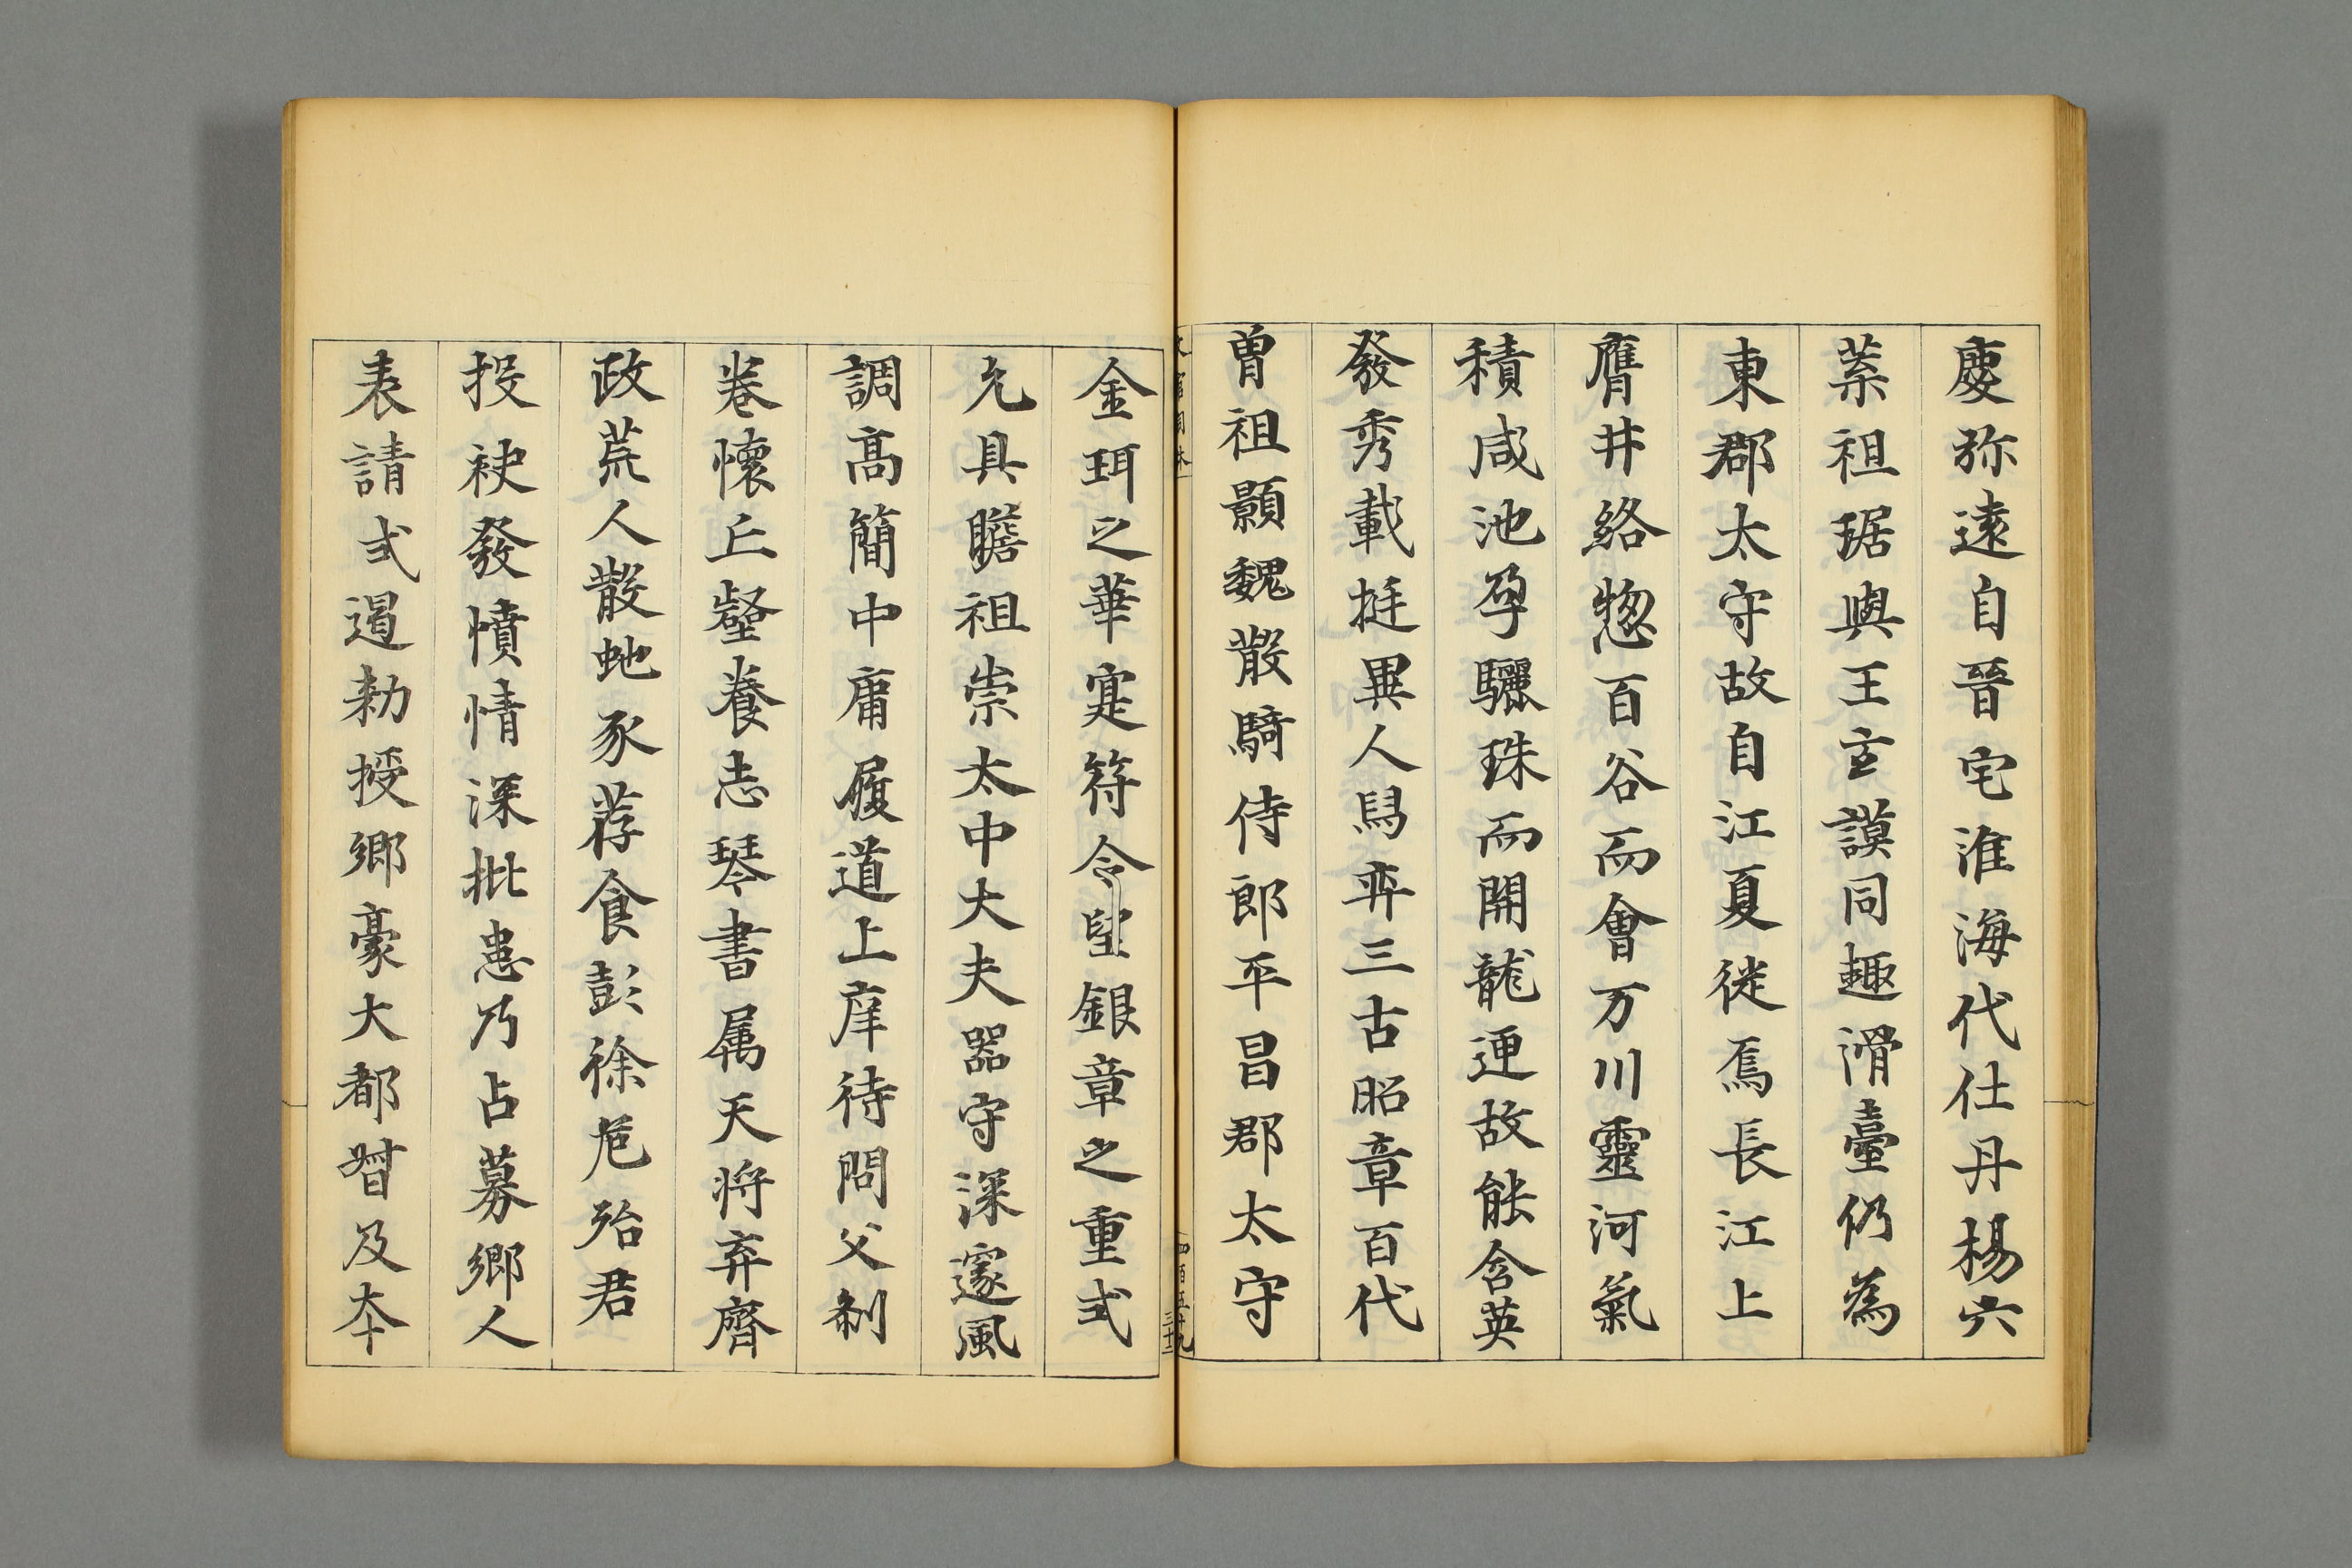 慶弥遠自晉宅淮海代仕丹楊六
葉祖琚與王玄謨同趣滑臺仍為
東郡太守故自江夏徙焉長江上
膺井絡惣百谷而會万川靈河氣
積咸池孕驪珠而開龍運故能含英
發秀載挺異人舄弈三古昭章百代
曽祖顥魏散騎侍郎平昌郡太守
金珥之華寔符令望銀章之重式
允具瞻祖崇太中大夫器守深邃風
調高簡中庸履道上庠待問父制
卷懷丘壑養志琴書属天将弃齊
政荒人散虵豕荐食彭徐危殆君
投袂發憤情深批患乃占募郷人
表請式遏勑授郷豪大都督及本